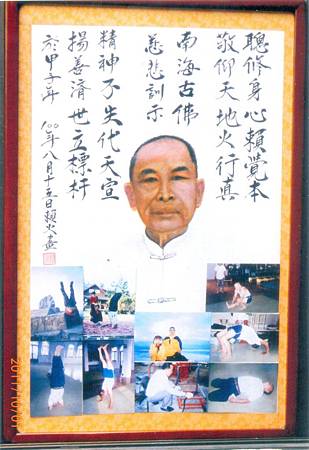 聰修身心賴覺本
敬仰天地火行真
南海古佛
慈悲訓示
精神不失代天宣
揚善濟世立標杆
於甲子年 100年八月十五日賴火畫
2011/10/01